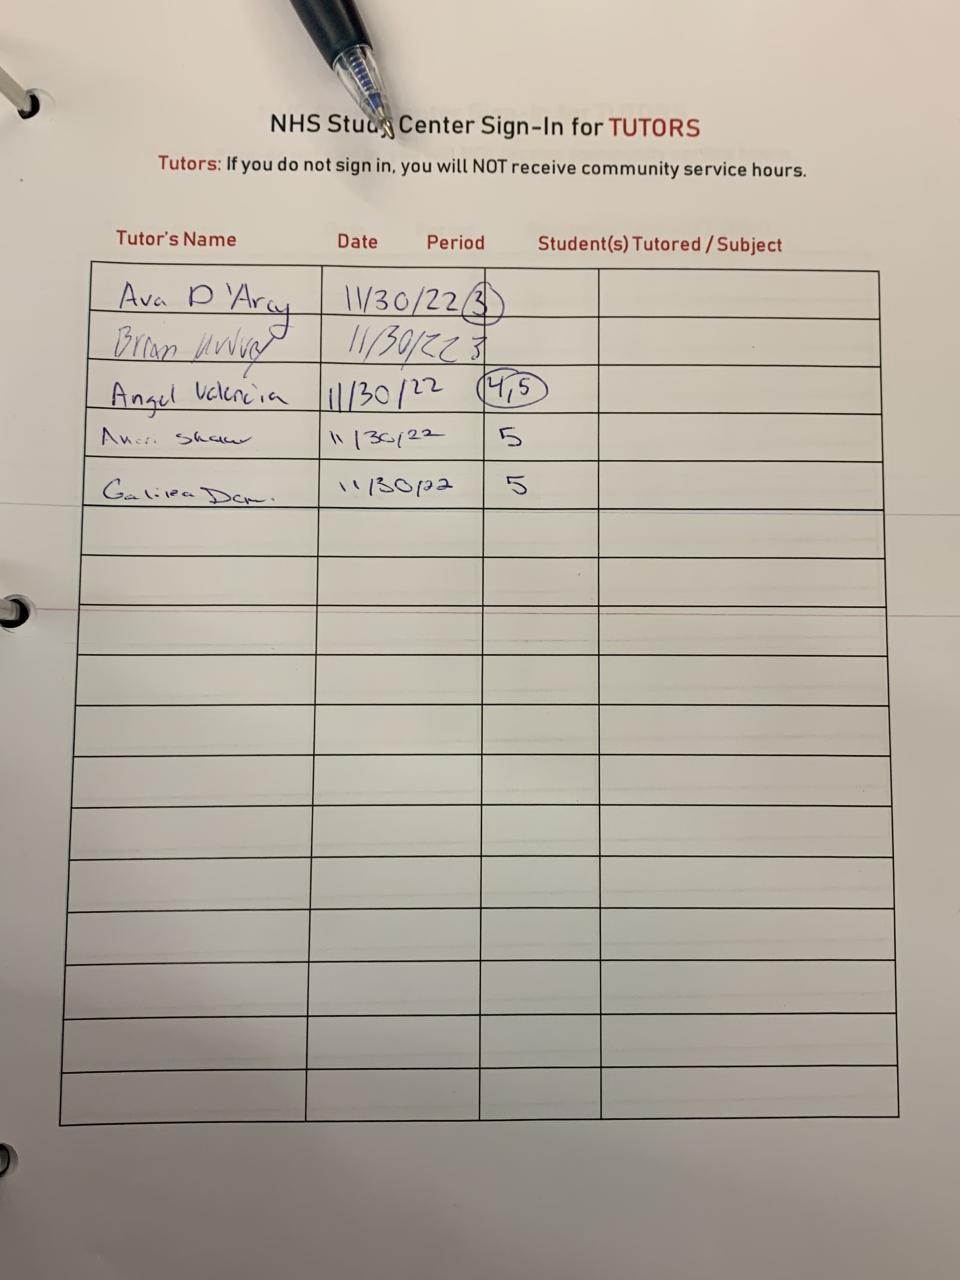 NHS Study Center Sign-In for TUTORS
Tutors: If you do not sign in, you will NOT receive community service hours.
Tutor's Name Date Period Student(s) Tutored / Subject
Ava D'Arcy 11/30/22 3
Brian 11/30/22 3
Angel Valencia 11/30/22 4,5
Shaw 11/30/22 5
Galilea 11/30/22 5